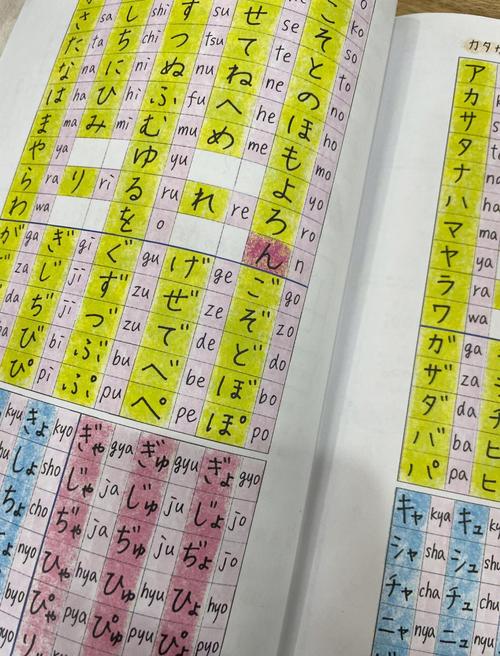 o
こ ko
さ sa し shi す su せ se そ so
た ta ち chi つ tsu て te と to
な na に ni ぬ nu ね ne の no
は ha ひ hi ふ fu へ he ほ ho
ま ma み mi む mu め me も mo
や ya ゆ yu よ yo
ら ra り ri る ru れ re ろ ro
わ wa を o ん n
が ga ぎ gi ぐ gu げ ge ご go
za じ ji ず zu ぜ ze ぞ zo
da ぢ ji づ zu で de ど do
び bi ぶ bu べ be ぼ bo
ぴ pi ぷ pu ぺ pe ぽ po
kyu きょ kyo
しょ sho
ちょ cho
nyo
byo
pyo
ぎゃ gya ぎゅ gyu ぎょ gyo
じゃ ja じゅ ju じょ jo
ぢゃ ja ぢゅ ju ぢょ jo
ひゃ hya ひゅ hyu ひょ hyo
ぴゃ pya ぴゅ pyu ぴょ pyo
り
カタ
ア
カ
サ
タ
ナ na
ハ ha
マ ma
ヤ ya
ラ ra
ワ wa
ガ ga
ザ za
ダ da
バ ba ヒ
パ pa ヒ
キャ kya キュ
シャ sha シュ shu
チャ cha チュ chu
ニャ nya ニュ nyu